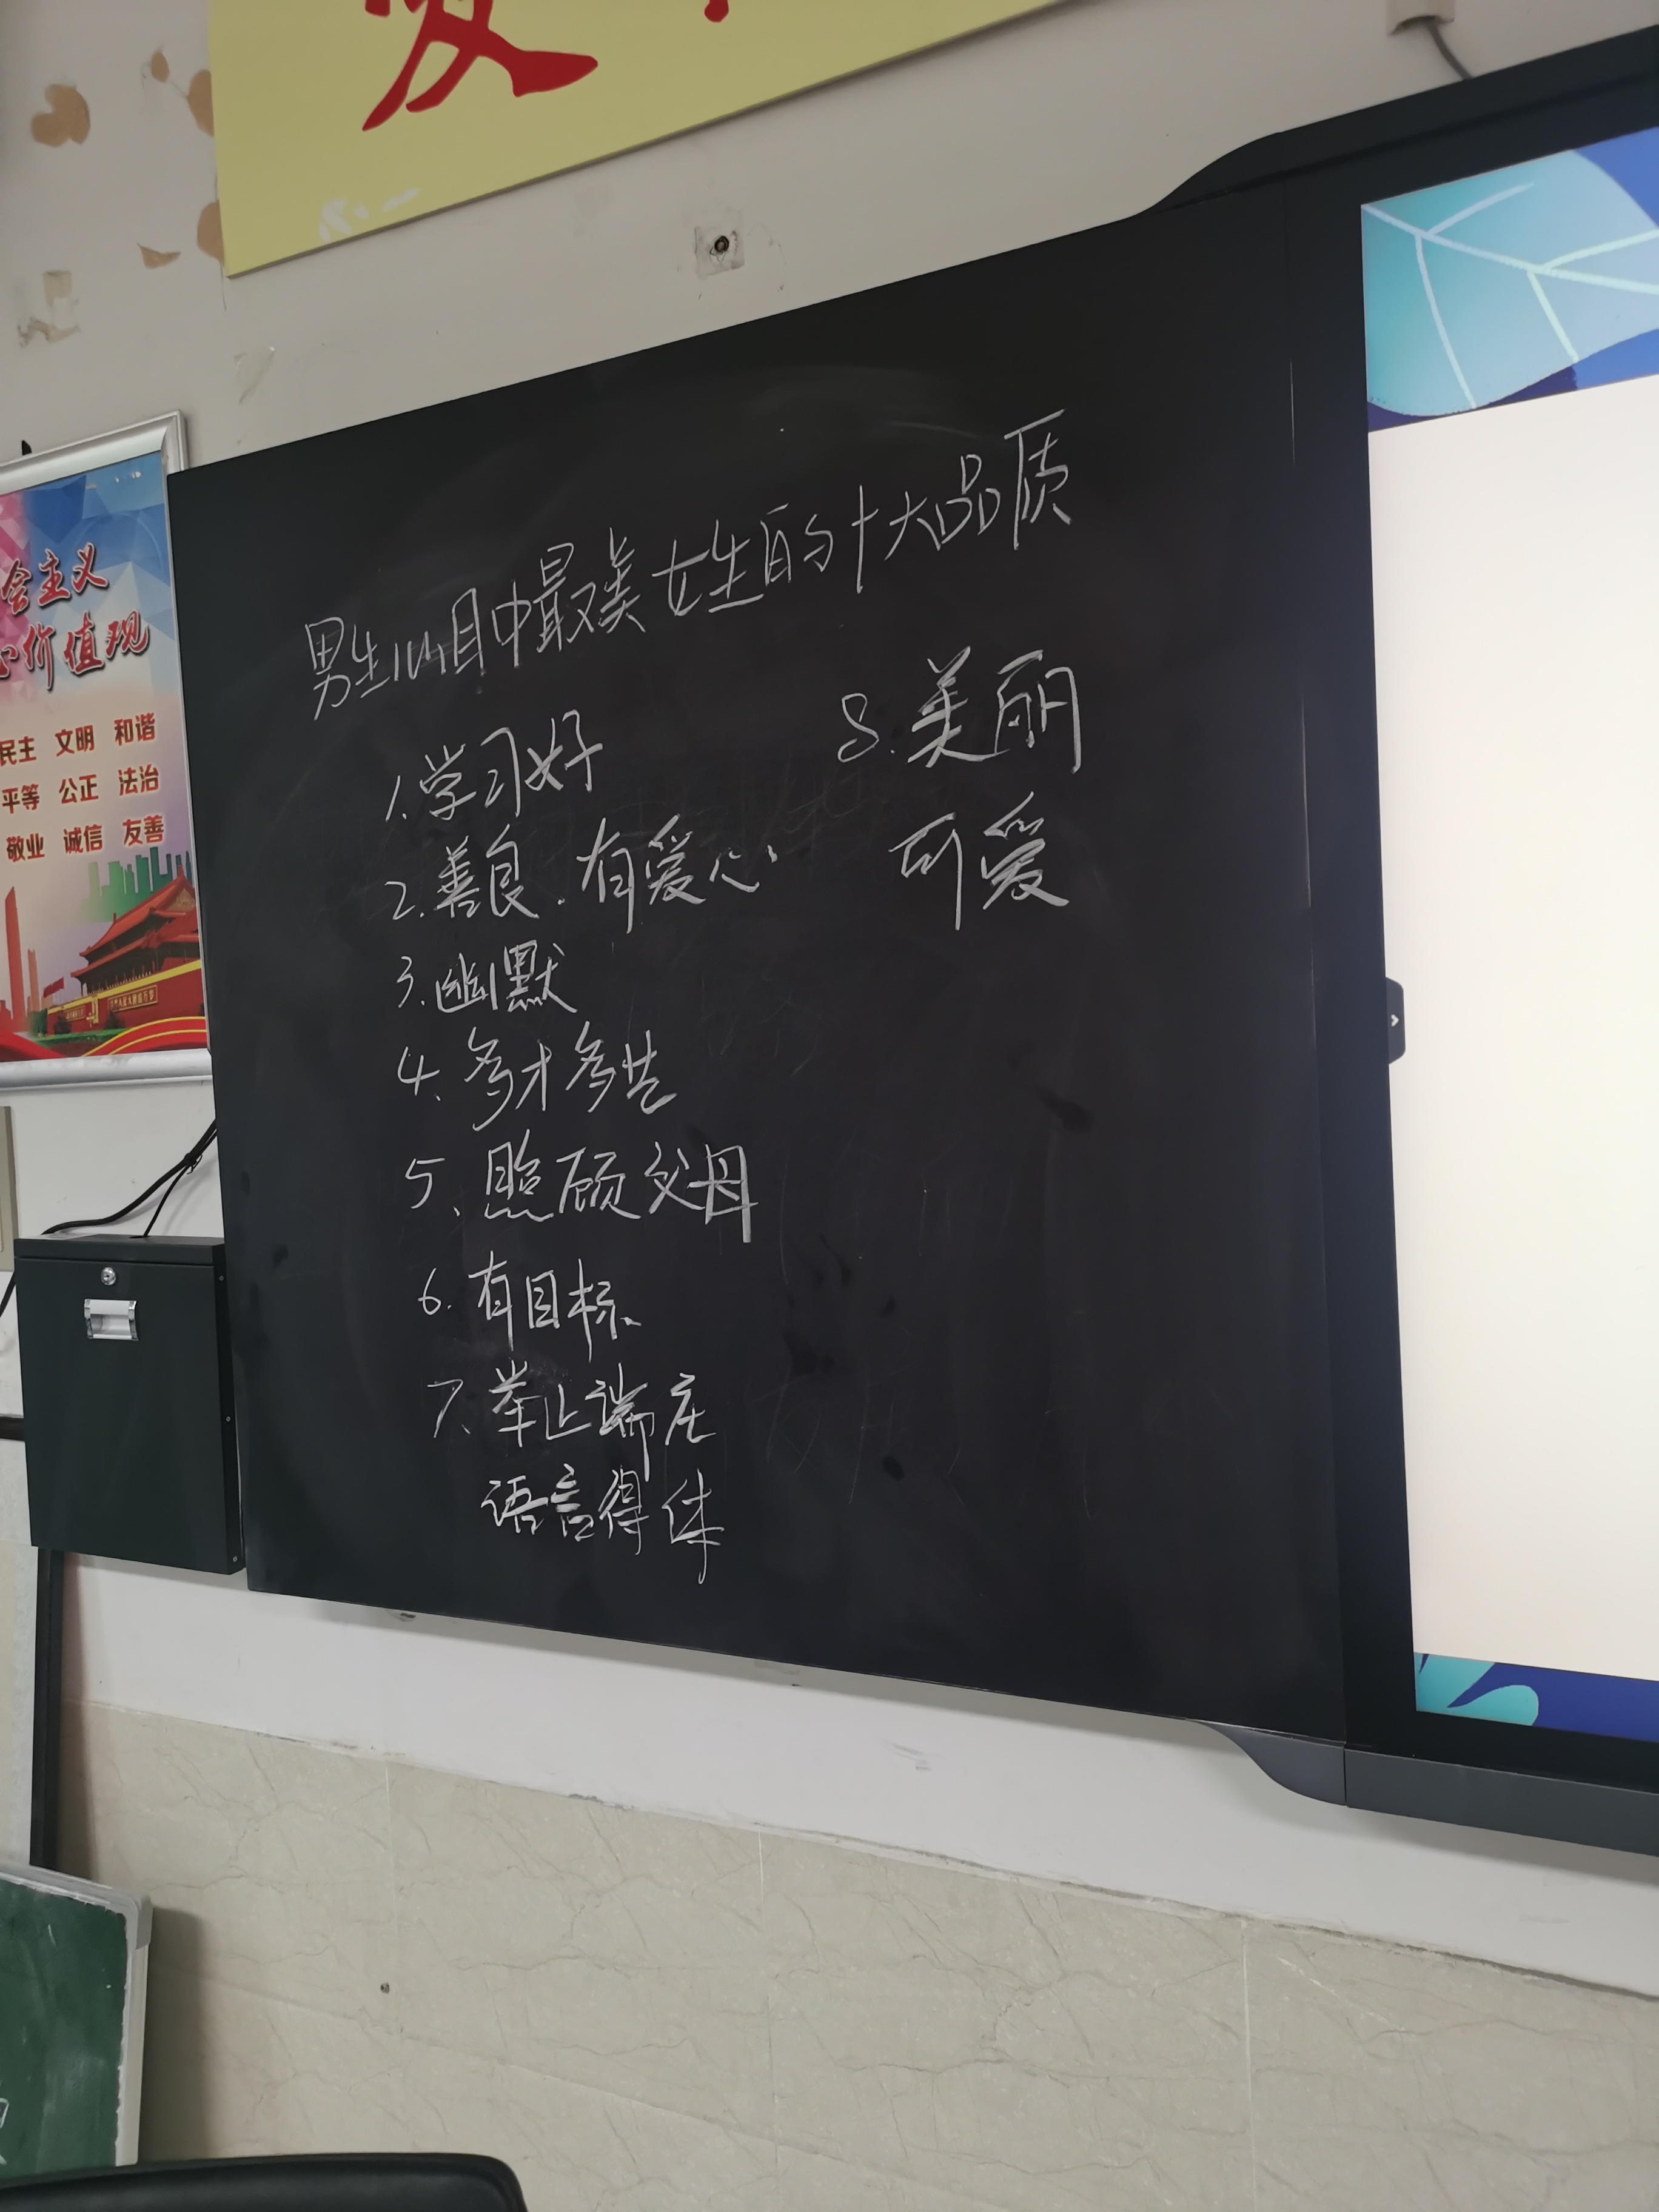 会主义
价值观
民主 文明 和谐
平等 公正 法治
敬业 诚信 友善
男生心目中最美女生的十大品质
1.学习好
2.善良.有爱心
3.幽默
4、多才多艺
5、照顾父母
6.有目标
7、举止端庄
语言得体
8.美丽
可爱